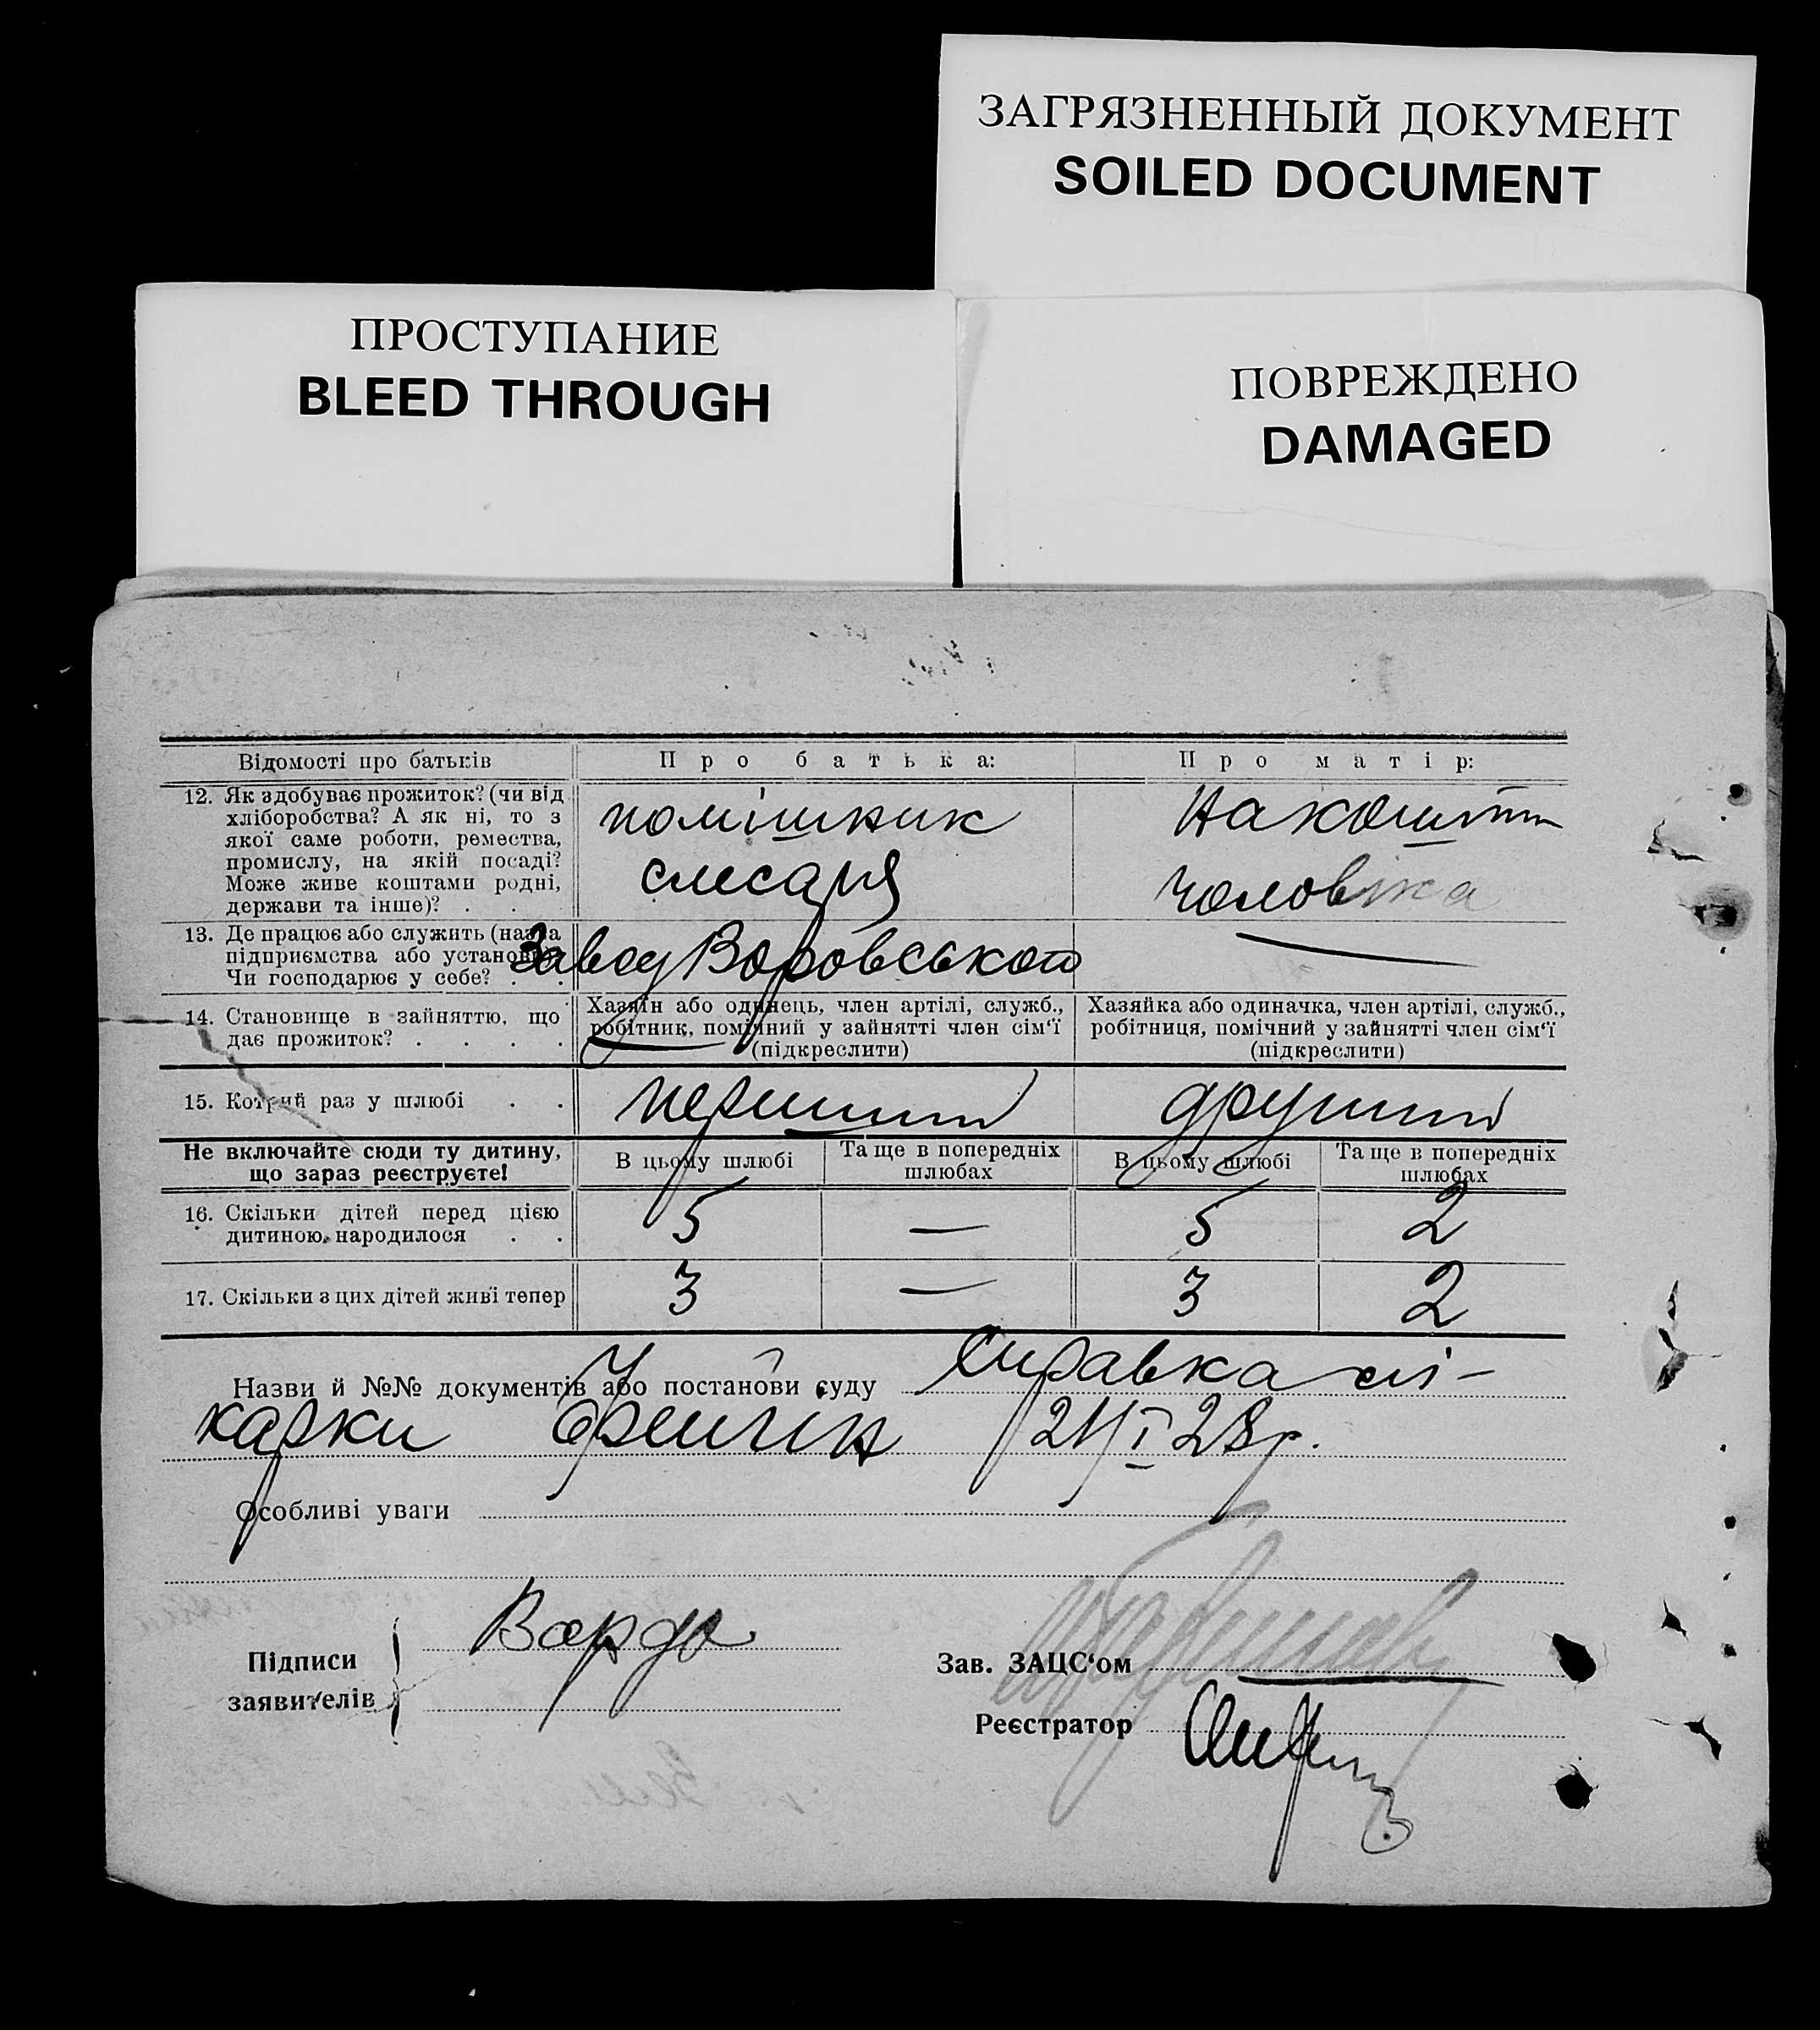 ЗАГРЯЗНЕННЫЙ ДОКУМЕНТ
SOILED DOCUMENT
ПРОСТУПАНИЕ
BLEED THROUGH
ПОВРЕЖДЕНО
DAMAGED
Відомості про батьків
Про батька:
Про матір:
12. Як здобуває прожиток? (чи від
хліборобства? А як ні, то з
якої саме роботи, ремества,
промислу, на якій посаді?
Може живе коштами родні,
держави та інше)? . . .
помішник
слесаря
На кошти
чоловіка
13. Де працює або служить (назва
підприємства або установи)?
Чи господарює у себе? . .
Завод Воровського
—
14. Становище в зайняттю, що
дає прожиток? . . . .
Хазяїн або одинець, член артілі, служб.,
робітник, помічний у зайнятті член сім‘ї
(підкреслити)
Хазяйка або одиначка, член артілі, служб.,
робітниця, помічний у зайнятті член сім‘ї
(підкреслити)
15. Котрий раз у шлюбі . .
перший
другий
Не включайте сюди ту дитину,
що зараз реєструєте!
В цьому шлюбі
Та ще в попередніх
шлюбах
В цьому шлюбі
Та ще в попередніх
шлюбах
16. Скільки дітей перед цією
дитиною народилося . .
5 — 5 2
17. Скільки з цих дітей живі тепер
3 — 3 2
Назви й №№ документів або постанови суду Справка лі-
карки 21/I 28р.
Особливі уваги
Підписи
заявителів
Зав. ЗАЦС‘ом
Реєстратор